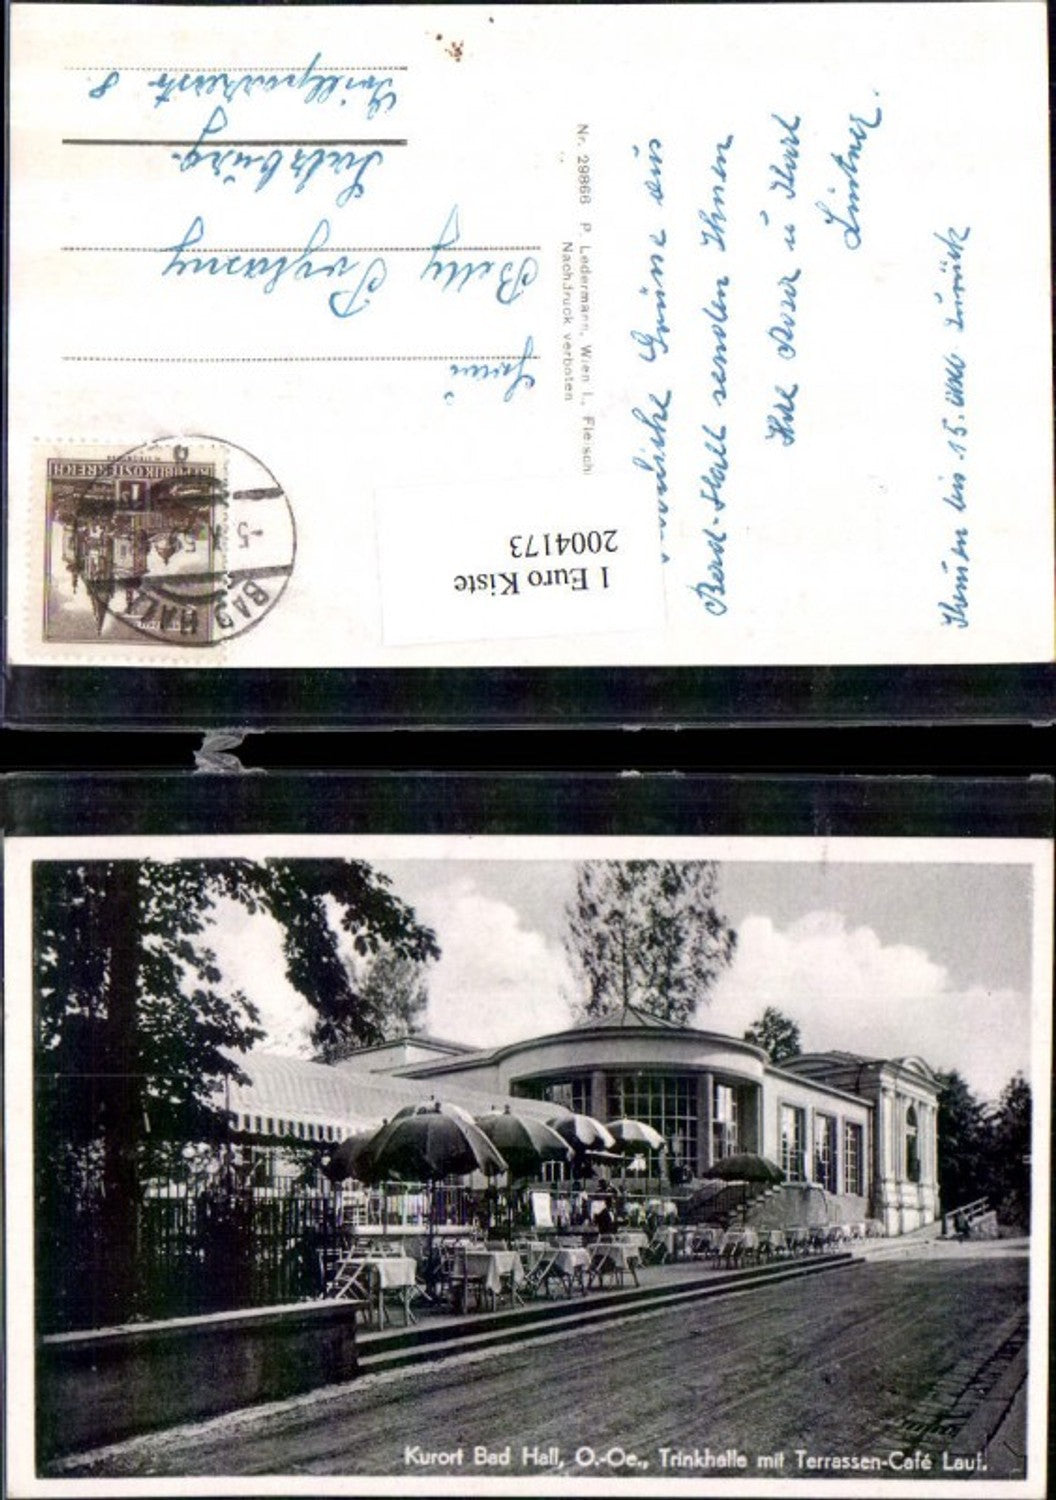 Herzliche Grüße aus
Bad-Hall senden Ihnen
Ihre Rosa u Karl
Lintner.
kommen bis 15. zurück
Nr. 29866 P. Ledermann, Wien I., Fleisch
Nachdruck verboten
Frau
Betty
Salzburg.
Grillparzerstr 8.
REPUBLIK ÖSTERREICH
BAD HALL
-5. X. 59
1 Euro Kiste
2004173
Kurort Bad Hall, O.-Oe., Trinkhalle mit Terrassen-Café Lauf.